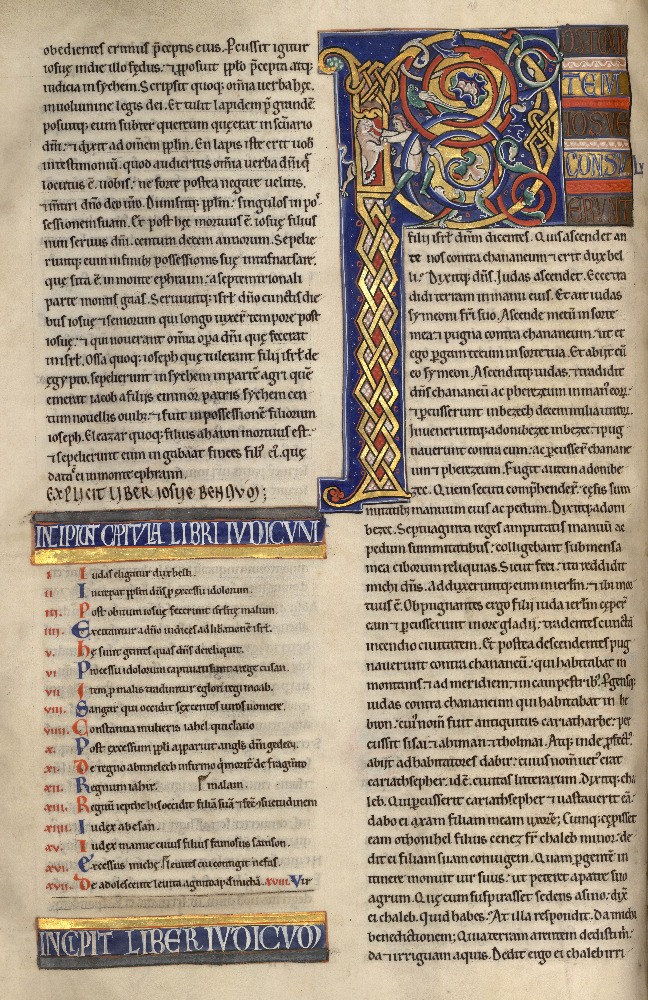 obedientes erimus p̄ceptis eius. Percussit igitur
iosue in die illo fędus. ⁊ ꝓposuit pp̄lo p̄cepta atq;
iudicia in sychem. Scripsit quoq; om̄ia uerba hęc
in uolumine legis dei. Et tulit lapidem p̄grandē
posuitq; eum subter quercum quę erat in sc̄uario
dn̄i. ⁊ dixit ad om̄em pp̄lm. En lapis iste erit uob̄
in testimoniū. quod audieritis om̄ia uerba dn̄i q̄
locutus ē uobis. ne forte postea negare uelitis.
⁊ m̄tiri dn̄o deo ur̄o. Dimisitq; pp̄lm. singulos in pos
sessionem suam. Et post hęc mortuus ē iosue filius
nun seruus dn̄i. centum decem annorum. Sepelie
runtq; eum in finib; possessionis suę in thamnatsare.
quę sita ē in monte ephraim. a septemtrionali
parte montis gaas. Seruiuitq; isr̄l dn̄o cunctis die
bus iosue ⁊ seniorum qui longo uixer̄ tempore post
iosue. ⁊ qui nouerant om̄ia op̄a dn̄i quę fecerat
in isr̄l. Ossa quoq; ioseph quę tulerant filii isr̄l de
egypto. sepelierunt in sychem in parte agri quē
emerat iacob a filiis emmor patris sychem cen
tum nouellis ouib; ⁊ fuit in possessionē filiorum
ioseph. Eleazar quoq; filius aharon mortuus est.
⁊ sepelierunt eum in gabaat finees filii ei. quę
data ē ei in monte ephraim.
EXPLICIT LIBER IOSUE BENNUN;
INCIPIUNT CAPITULA LIBRI IUDICUM
i Iudas eligitur dux belli.
ii Increpat pp̄lm dn̄s p̄ excessu idolorum.
iii. Post obitum iosue fecerunt isr̄litę malum.
iiii. Excitantur a dn̄o iudices ad liberationē isr̄l.
v. Hę sunt gentes quas dn̄s dereliquit.
vi P excessu idolorum captiuati sunt a rege cusan.
vii Item p̄ malis traduntur eglon regi moab.
viii. Sangar qui occidit sexcentos uiros uomere.
viiii. Constantia mulieris iahel que clauo
x. Post excessum pp̄li apparuit angl̄s dn̄i gedeon.
xi. De regno abimelech infirmo q̄ morit̄ de fragm̄to
xii. Regnum iahir. molam.
xiii. Regnū iepthe his occidit filiā suā ⁊ fec̄ consuetudinem
xiiii Iudex abesan.
xv. Iudex manue cuius filius famosus samson.
xvi. Excessus michę ⁊ leuites cui contigit nefas.
xvii. De adolescente leuita. xviii. Vir
INCIPIT LIBER IUDICUM
POST MOR
TEM
IOSUE
CONSVLV
ERUNT
filii isr̄l dn̄m dicentes. Quis ascendet an
te nos contra chananeum ⁊ erit dux bel
li. Dixitq; dn̄s. Iudas ascendet. Ecce tra
didi terram in manu eius. Et ait iudas
symeoni fr̄i suo. Ascende mecū in sorte
mea. ⁊ pugna contra chananeum. ut et
ego pergam tecum in sorte tua. Et abiit cū
eo symeon. Ascenditq; iudas. ⁊ tradidit
dn̄s chananeū ac pherezeum in man; eor̄.
⁊ percusserunt in bezech decem milia uirorū.
Inueneruntq; adonibezec in bezec. ⁊ pug
nauerunt contra eum. ac percusser̄ chanane
um ⁊ pherezeum. Fugit autem adonibe
zec. Quem secuti comp̄hender̄. cęsis sum
mitatib; manuum eius ac pedum. Dixitq; adoni
bezec. Septuaginta reges amputatis manuū ac
pedum summitatibus. colligebant sub mensa
mea ciborum reliquias. Sicut feci. ita reddidit
michi dn̄s. Adduxeruntq; eum in ier̄lm. ⁊ ibi mor
tuus ē. Obpugnantes ergo filii iuda ier̄lm ceper̄
eam. ⁊ percusserunt in ore gladii. tradentes cunctā
incendio ciuitatem. Et postea descendentes pug
nauerunt contra chananeū. qui habitabat in
montanis ⁊ ad meridiem. ⁊ in campestrib;. Pergensq;
iudas contra chananeum qui habitabat in he
bron. cui; nom̄ fuit antiquitus cariatharbe. per
cussit sisai ⁊ ahiman ⁊ tholmai. Atq; inde p̄fect;
abiit ad habitatores dabir. cuius nom̄ uet; erat
cariathsepher. id ē. ciuitas litterarum. Dixitq; cha
leb. Qui percusserit cariathsepher ⁊ uastauerit eā.
dabo ei axam filiam meam uxorē. Cumq; cepisset
eam othonihel filius cenez fr̄ chaleb minor. de
dit ei filiam suam coniugem. Quam p̄gentē in
itinere monuit uir suus. ut peteret a patre suo
agrum. Quę cum suspirasset sedens asino. dix̄
ei chaleb. Quid habes. At illa respondit. Da michi
benedictionem. Quia terram arentem dedisti m̄.
da ⁊ irriguam aquis. Dedit ergo ei chaleb irri